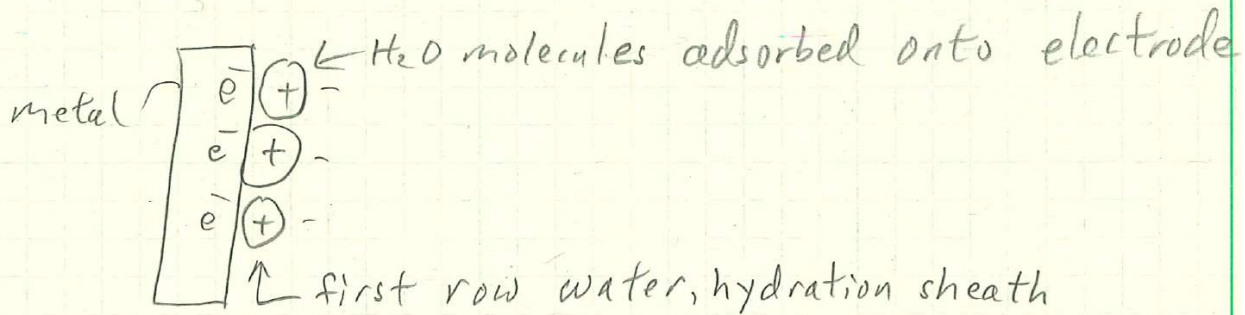 ← H₂O molecules adsorbed onto electrode
metal e⁻ + -
e⁻ + -
e⁻ + -
↑ first row water, hydration sheath